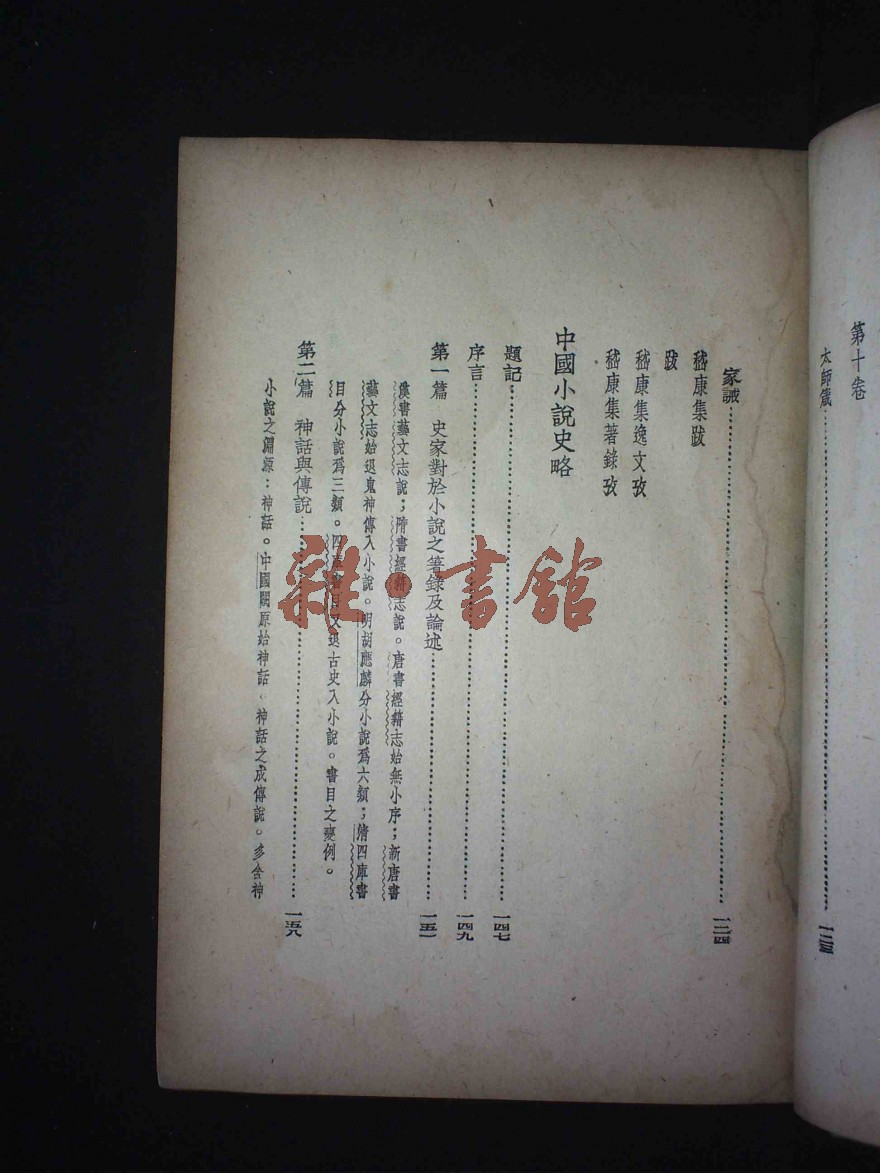 第十卷
太師箴……一三三
家誡……一三四
嵇康集跋
跋
嵇康集逸文攷
嵇康集著錄攷
中國小說史略
題記……一四七
序言……一四九
第一篇 史家對於小說之著錄及論述……一五一
漢書藝文志說；隋書經籍志說。唐書經籍志始無小序；新唐書
藝文志始退鬼神傳入小說。明胡應麟分小說爲六類；清四庫書
目分小說爲三類。四庫書目又退古史入小說。書目之變例。
第二篇 神話與傳說……一五八
小說之淵源：神話。中國闕原始神話、神話之成傳說。多含神
雜·書館